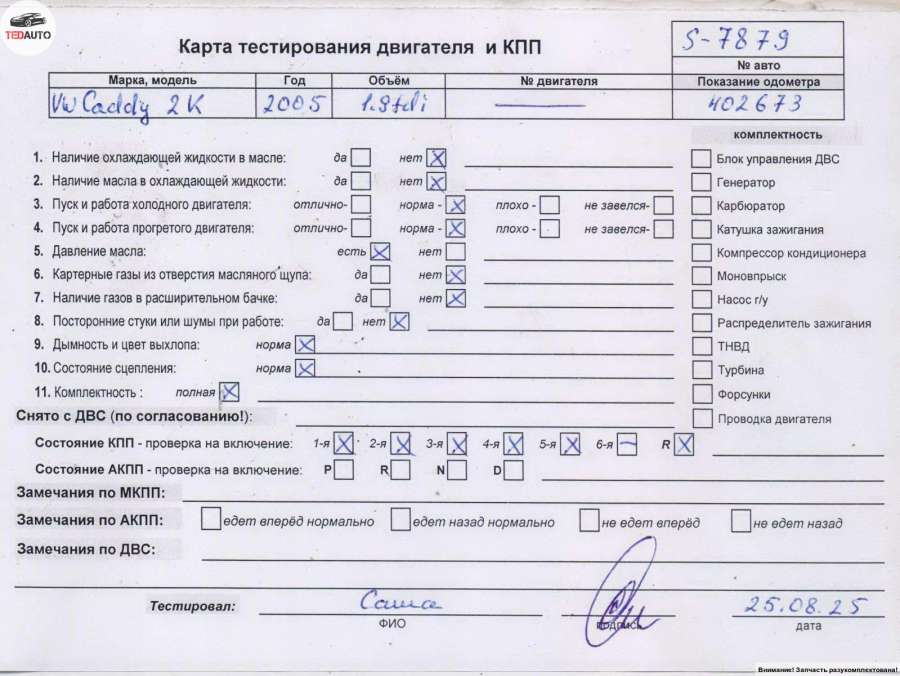 TEDAUTO
Карта тестирования двигателя и КПП
S-7879
№ авто
Марка, модель Год Объём № двигателя Показание одометра
VW Caddy 2K 2005 1.9tdi — 402673
комплектность
1. Наличие охлаждающей жидкости в масле: да нет X
2. Наличие масла в охлаждающей жидкости: да нет X
3. Пуск и работа холодного двигателя: отлично- норма - X плохо - не завелся-
4. Пуск и работа прогретого двигателя: отлично- норма - X плохо - не завелся-
5. Давление масла: есть X нет
6. Картерные газы из отверстия масляного щупа: да нет X
7. Наличие газов в расширительном бачке: да нет X
8. Посторонние стуки или шумы при работе: да нет X
9. Дымность и цвет выхлопа: норма X
10. Состояние сцепления: норма X
11. Комплектность : полная X
Блок управления ДВС
Генератор
Карбюратор
Катушка зажигания
Компрессор кондиционера
Моновпрыск
Насос г/у
Распределитель зажигания
ТНВД
Турбина
Форсунки
Проводка двигателя
Снято с ДВС (по согласованию!):
Состояние КПП - проверка на включение: 1-я X 2-я X 3-я X 4-я X 5-я X 6-я — R X
Состояние АКПП - проверка на включение: P R N D
Замечания по МКПП:
Замечания по АКПП: едет вперёд нормально едет назад нормально не едет вперёд не едет назад
Замечания по ДВС:
Тестировал: Саша 25.08.25
ФИО подпись дата
Внимание! Запчасть разукомплектована!